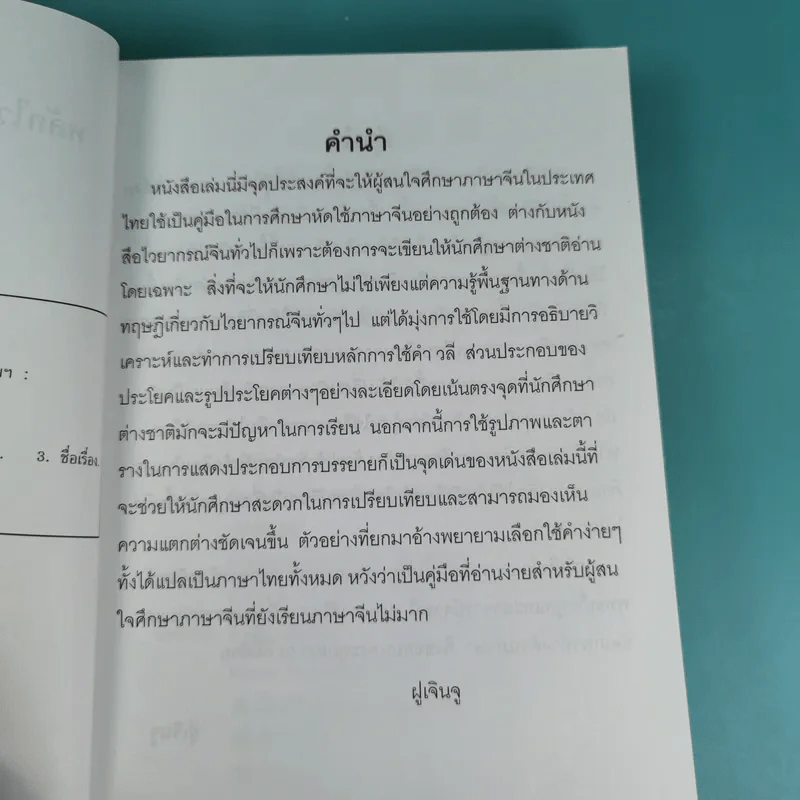 ฯ :
3. ชื่อเรื่อง
คำนำ
หนังสือเล่มนี่มีจุดประสงค์ที่จะให้ผู้สนใจศึกษาภาษาจีนในประเทศ
ไทยใช้เป็นคู่มือในการศึกษาหัดใช้ภาษาจีนอย่างถูกต้อง ต่างกับหนัง
สือไวยากรณ์จีนทั่วไปก็เพราะต้องการจะเขียนให้นักศึกษาต่างชาติอ่าน
โดยเฉพาะ สิ่งที่จะให้นักศึกษาไม่ใช่เพียงแต่ความรู้พื้นฐานทางด้าน
ทฤษฎีเกี่ยวกับไวยากรณ์จีนทั่วๆไป แต่ได้มุ่งการใช้โดยมีการอธิบายวิ
เคราะห์และทำการเปรียบเทียบหลักการใช้คำ วลี ส่วนประกอบของ
ประโยคและรูปประโยคต่างๆอย่างละเอียดโดยเน้นตรงจุดที่นักศึกษา
ต่างชาติมักจะมีปัญหาในการเรียน นอกจากนี้การใช้รูปภาพและตา
รางในการแสดงประกอบการบรรยายก็เป็นจุดเด่นของหนังสือเล่มนี้ที่
จะช่วยให้นักศึกษาสะดวกในการเปรียบเทียบและสามารถมองเห็น
ความแตกต่างชัดเจนขึ้น ตัวอย่างที่ยกมาอ้างพยายามเลือกใช้คำง่ายๆ
ทั้งได้แปลเป็นภาษาไทยทั้งหมด หวังว่าเป็นคู่มือที่อ่านง่ายสำหรับผู้สน
ใจศึกษาภาษาจีนที่ยังเรียนภาษาจีนไม่มาก
ฝูเจินจู